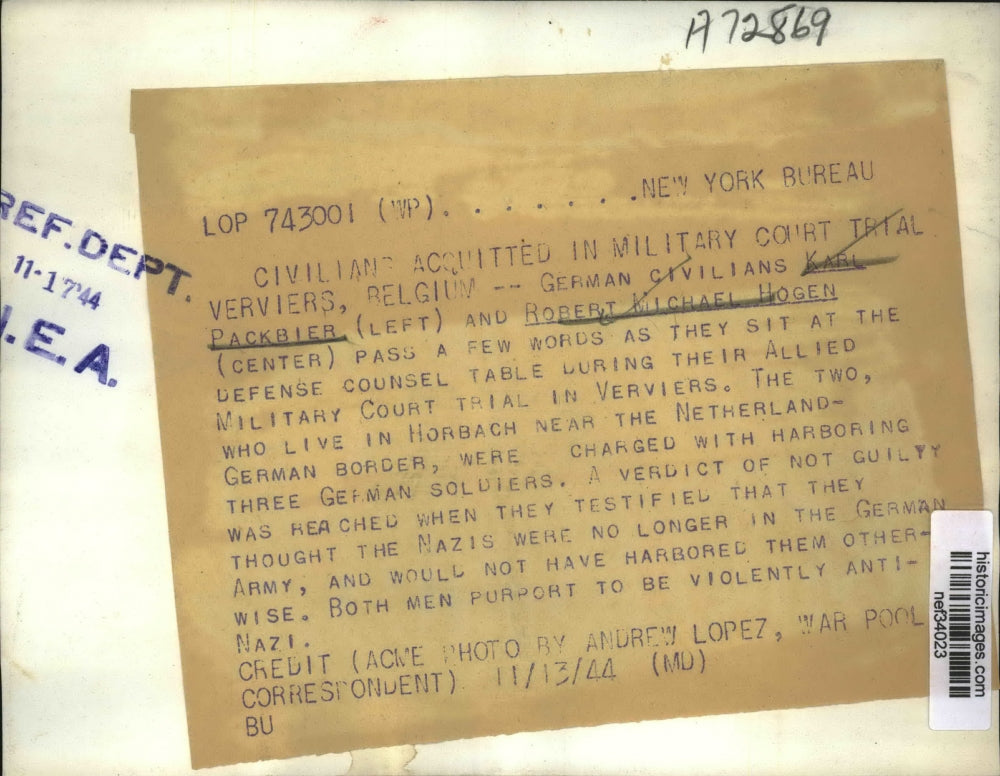 A72869
REF. DEPT.
11-17'44
N.E.A.
LOP 743001 (WP). . . . . . . .NEW YORK BUREAU
CIVILIANS ACQUITTED IN MILITARY COURT TRIAL
VERVIERS, BELGIUM -- GERMAN CIVILIANS KARL
PACKBIER (LEFT) AND ROBERT MICHAEL HOGEN
(CENTER) PASS A FEW WORDS AS THEY SIT AT THE
DEFENSE COUNSEL TABLE DURING THEIR ALLIED
MILITARY COURT TRIAL IN VERVIERS. THE TWO,
WHO LIVE IN HORBACH NEAR THE NETHERLAND-
GERMAN BORDER, WERE CHARGED WITH HARBORING
THREE GERMAN SOLDIERS. A VERDICT OF NOT GUILTY
WAS REACHED WHEN THEY TESTIFIED THAT THEY
THOUGHT THE NAZIS WERE NO LONGER IN THE GERMAN
ARMY, AND WOULD NOT HAVE HARBORED THEM OTHER-
WISE. BOTH MEN PURPORT TO BE VIOLENTLY ANTI-
NAZI.
CREDIT (ACME PHOTO BY ANDREW LOPEZ, WAR POOL
CORRESPONDENT) 11/13/44 (MD)
BU
historicimages.com
nef34023